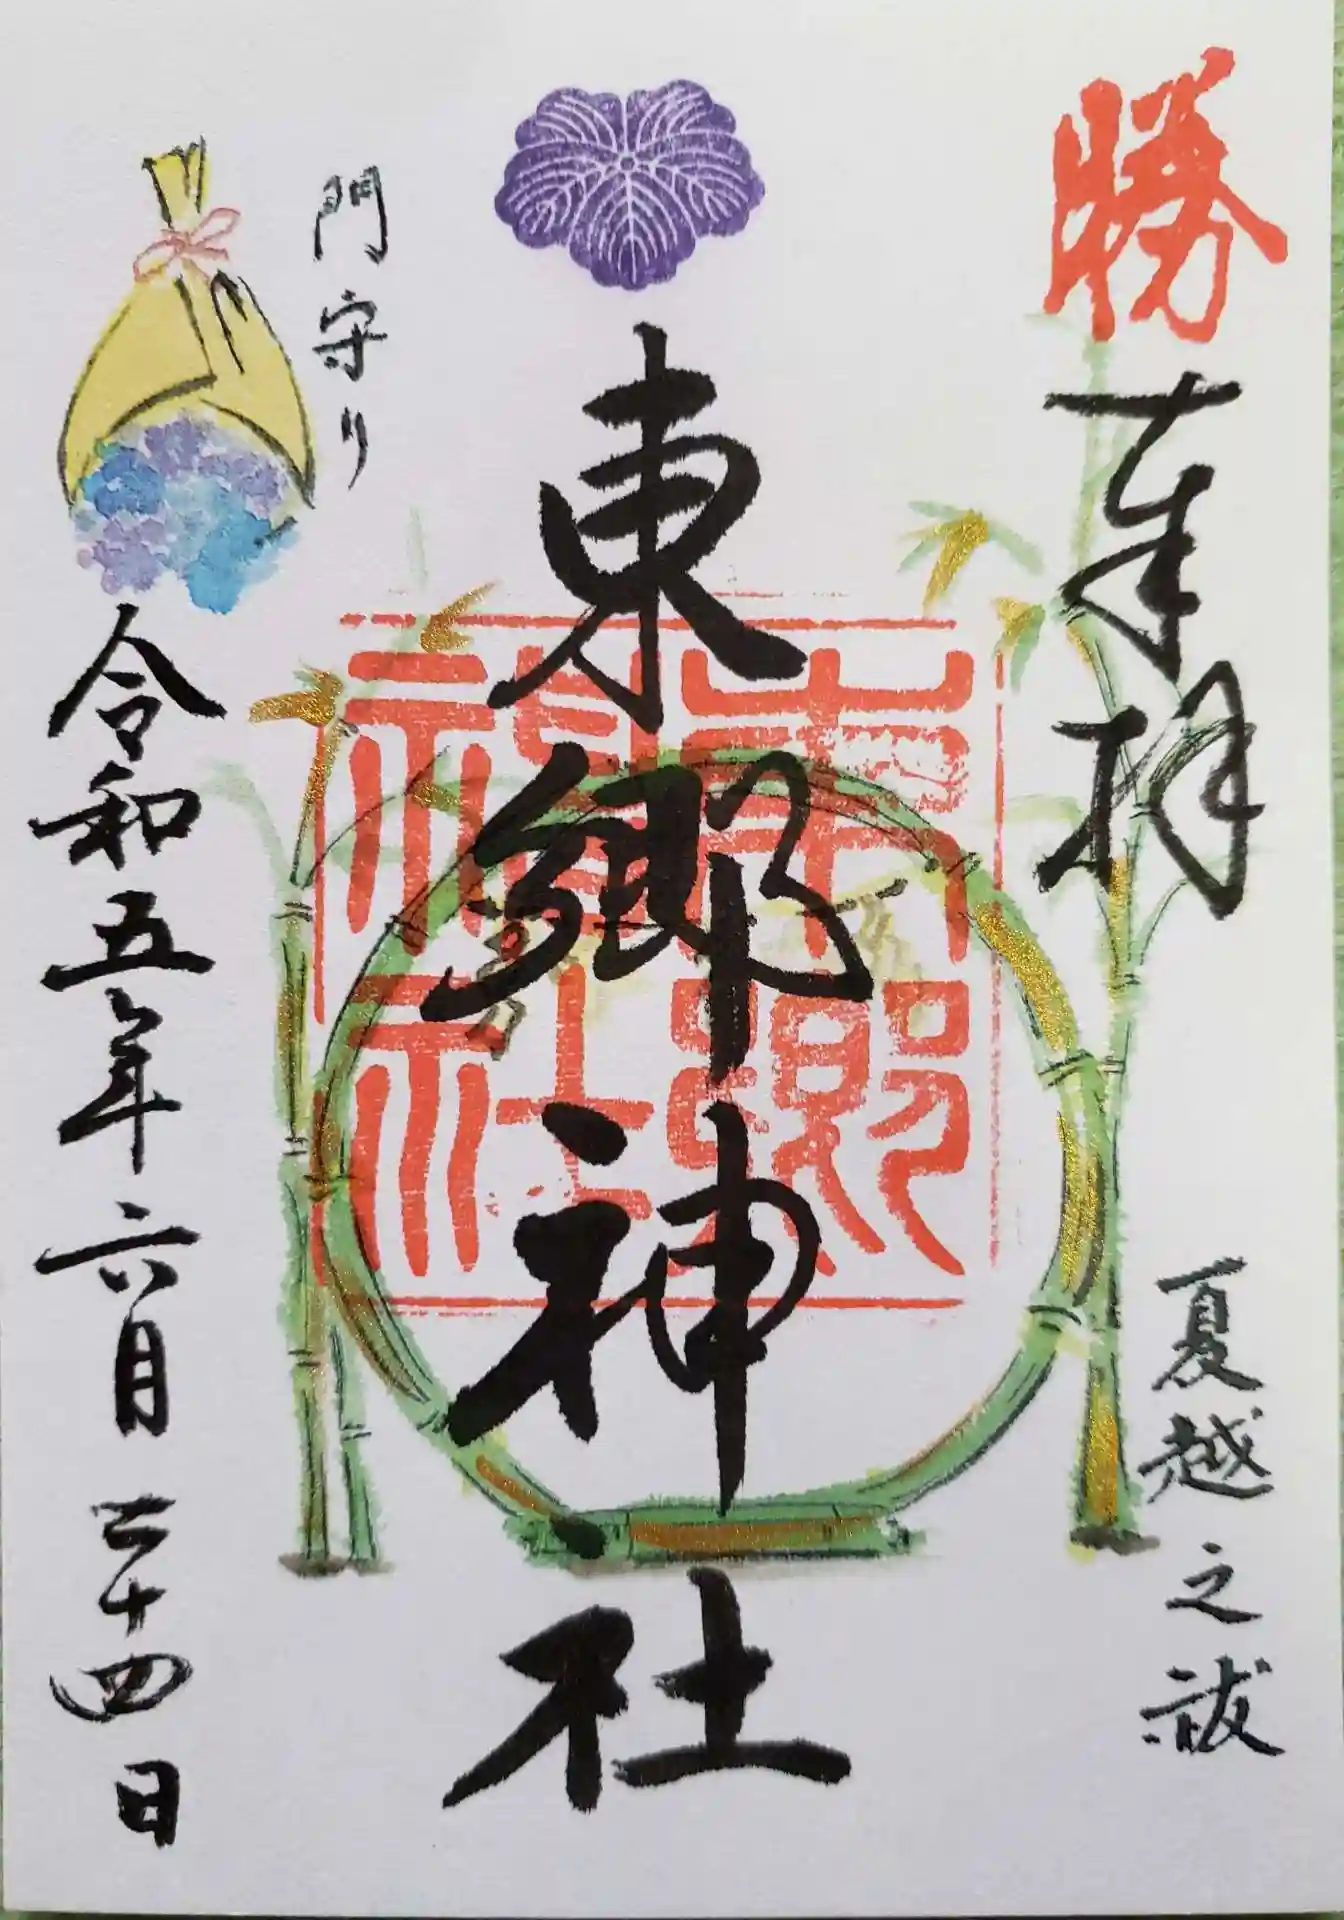 勝
奉拝
夏越之祓
東郷神社
東郷神社
門守り
令和五年六月二十四日